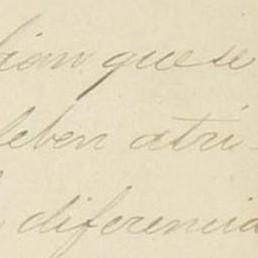 dian que se
deben atri-
diferencia